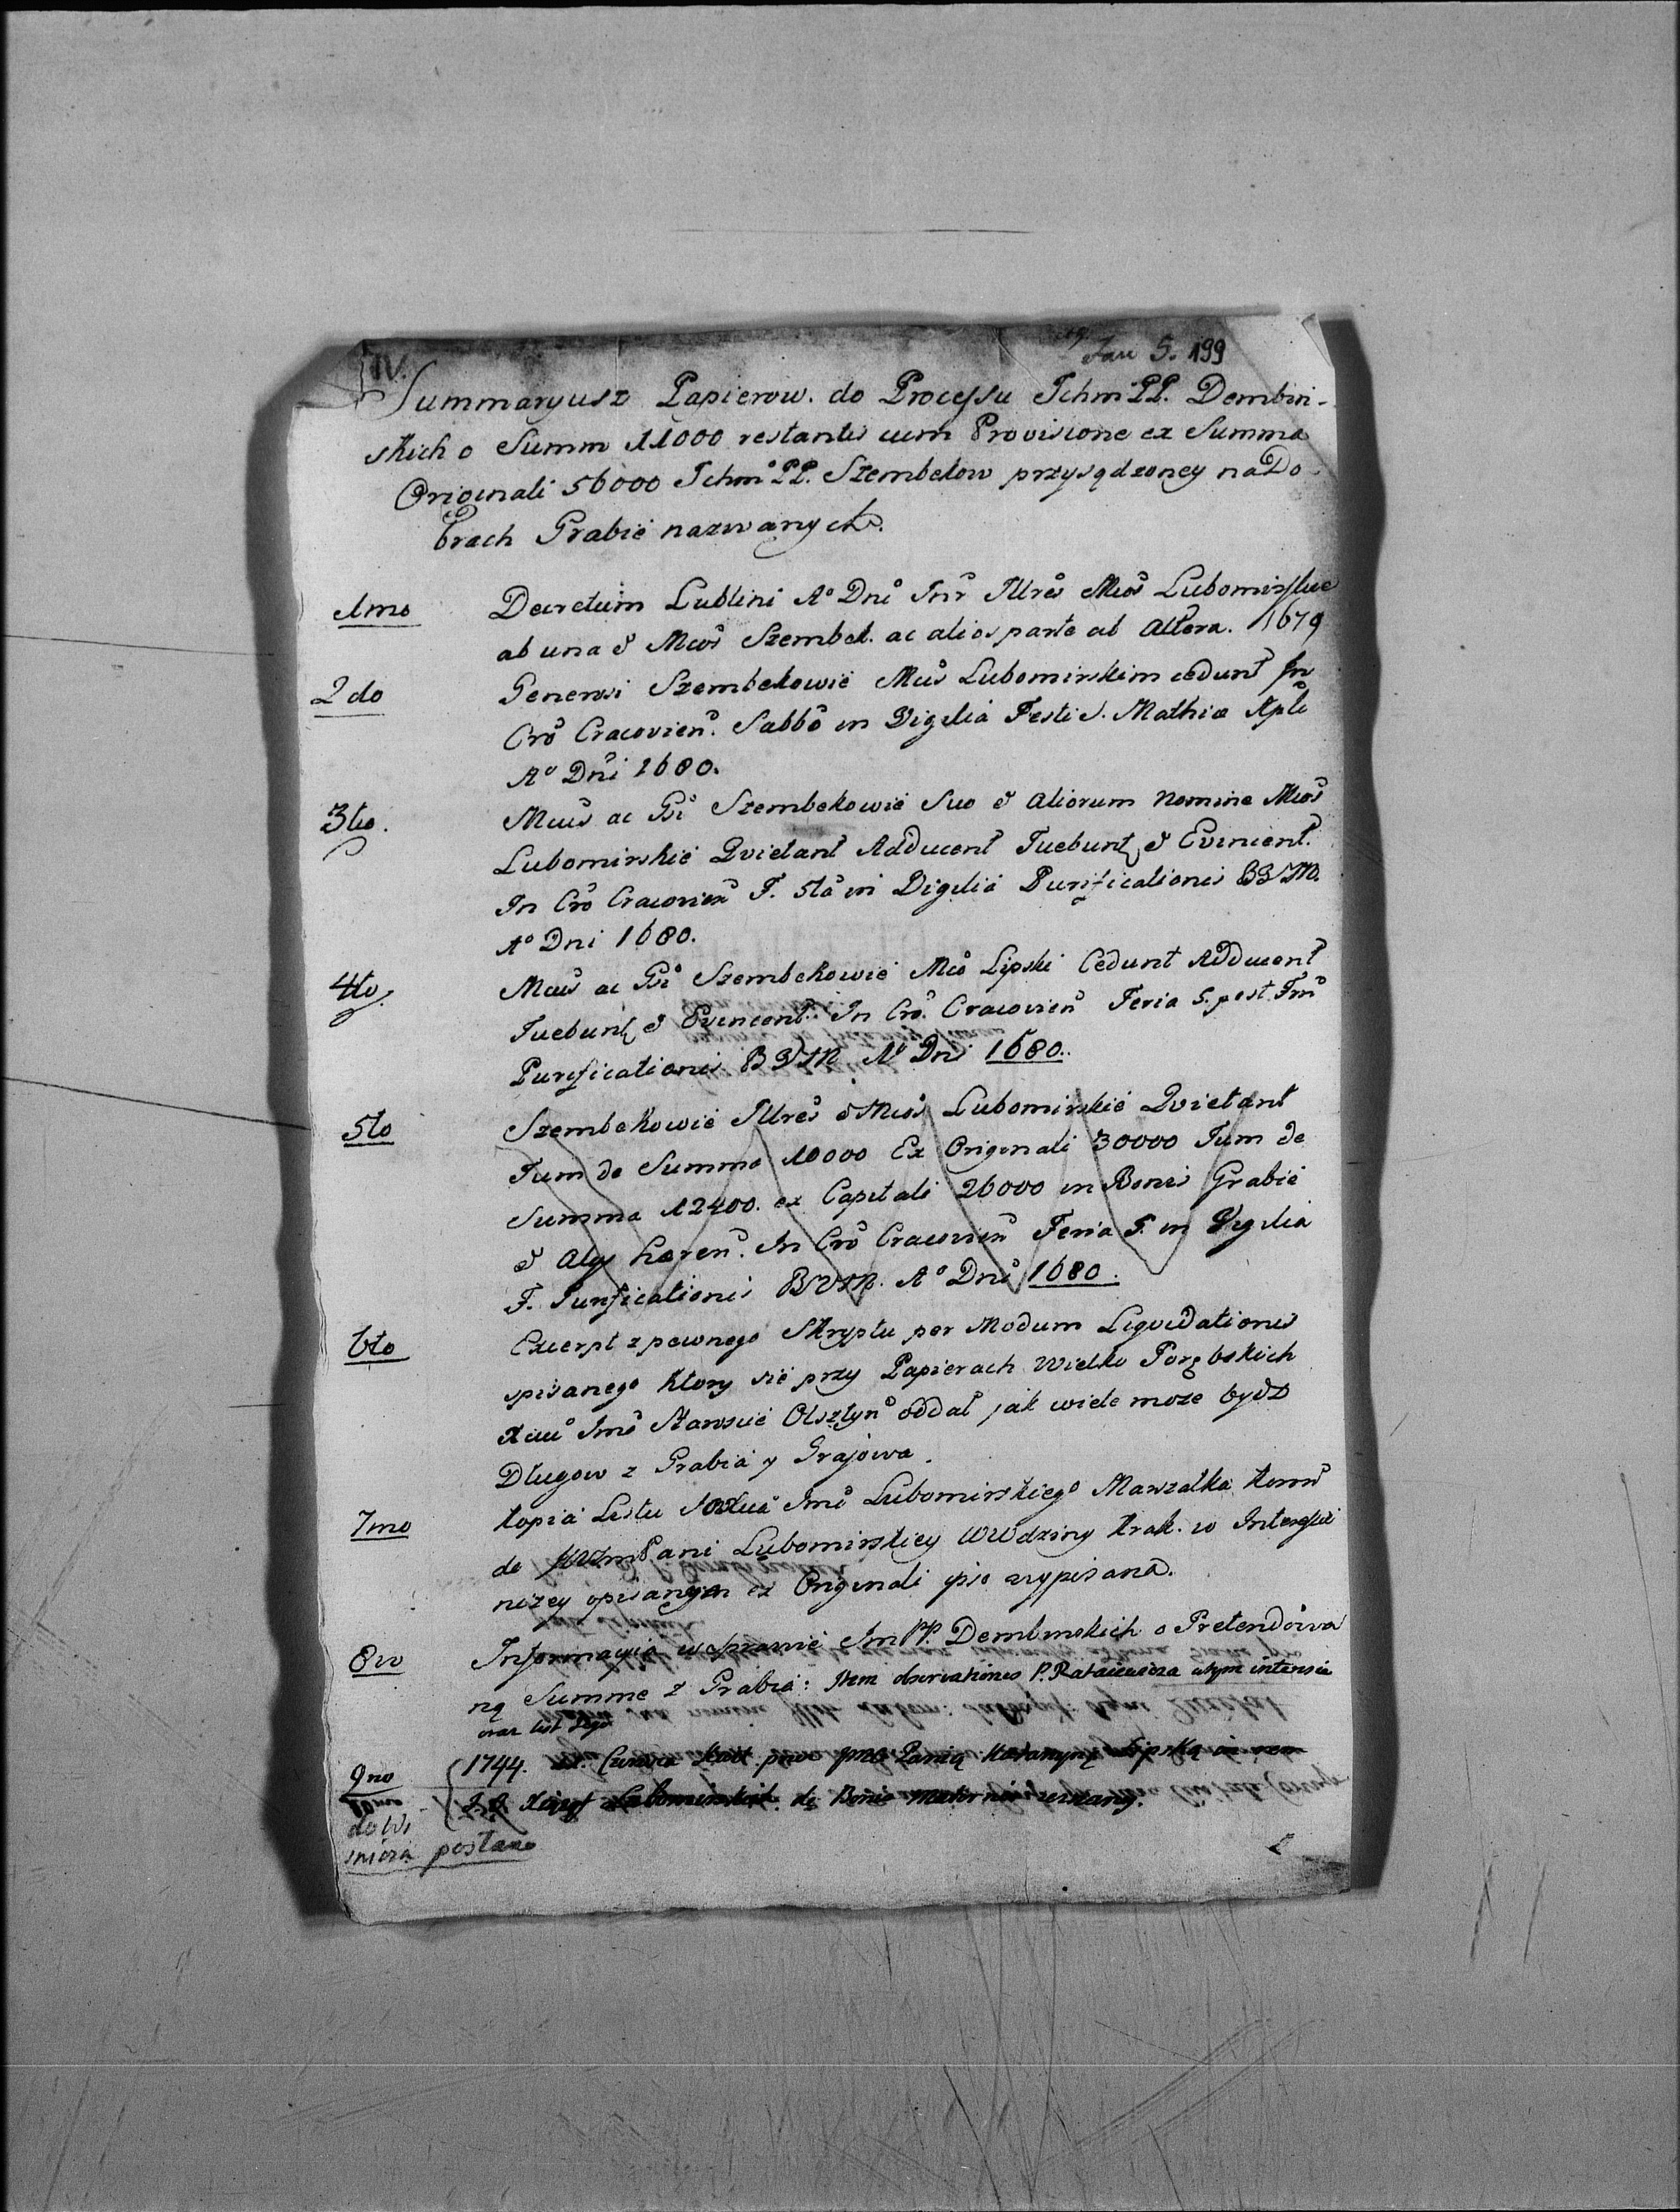 IV.
Fasc 5. 199
Summaryusz Papierow. do Processu Ichm PP. Dembin-
skich o Summ 11000 restantis cum Provisione ex Summa
Originali 56000 Ichm PP. Szembekow przysądzoney na Do-
brach Grabie nazwanych.
1mo Decretum Lublini Aº Dni Inr Illres Mcos Lubomirskie
ab una & Mcos Szembek. ac alios parte ab Altera. 1679
2do Generosi Szembekowie Mcis Lubomirskim cedunt In
Cro Cracovien. Sabbo in Vigilia Festi S. Mathiæ Apli
Aº Dni 1680.
3tio. Mcus ac Gsi Szembekowie Suo & Aliorum Nomine Mcos
Lubomirskie Quietant Adducent Tuebunt & Evincent.
In Cro Cracovien F. 5ta in Vigilia Purificationis BVM.
Aº Dni 1680.
4to. Mcus ac Gsi Szembekowie Mco Lipski Cedunt Adducent
Tuebunt & Evincent. In Cro. Cracovien Feria 5. post Fm
Purificationis BVM Aº Dni 1680.
5to Szembekowie Illres & Mcos Lubomirskie Quietant
Tum de Summa 10000 Ex Originali 30000 Tum de
Summa 12400. ex Capitali 26000 in Bonis Grabie
& Alys haeren. In Cro Cracovien Feria 5. in Vigilia
F. Purificationis BVM. Aº Dni 1680.
6to Excerpt z pewnego Skryptu per Modum Liquidationis
spisanego ktory się przy Papierach Wielko Porębskich
Xciu Imo Staroscie Olsztyn oddał jak wiele moze bydz
Długow z Grabia y Grajowa.
7mo Kopia Listu Imo Lubomirskiego Marszałka Koron
do Pani Lubomirskiey WWdziny Krak. w Interessie
nizey opisanym ex Originali ipso wypisana.
8vo Informacyia w sprawie Im PP. Dembinskich o Pretendowa
ną Summe z Grabia: Item observationes P. Rataiewicza wtym interesie
oraz list Jego
9no 1744. przez Panią Katarzynę Lipską
10mo Lubomirskich de Bonis zeznany.
do Wi
snicza posłano